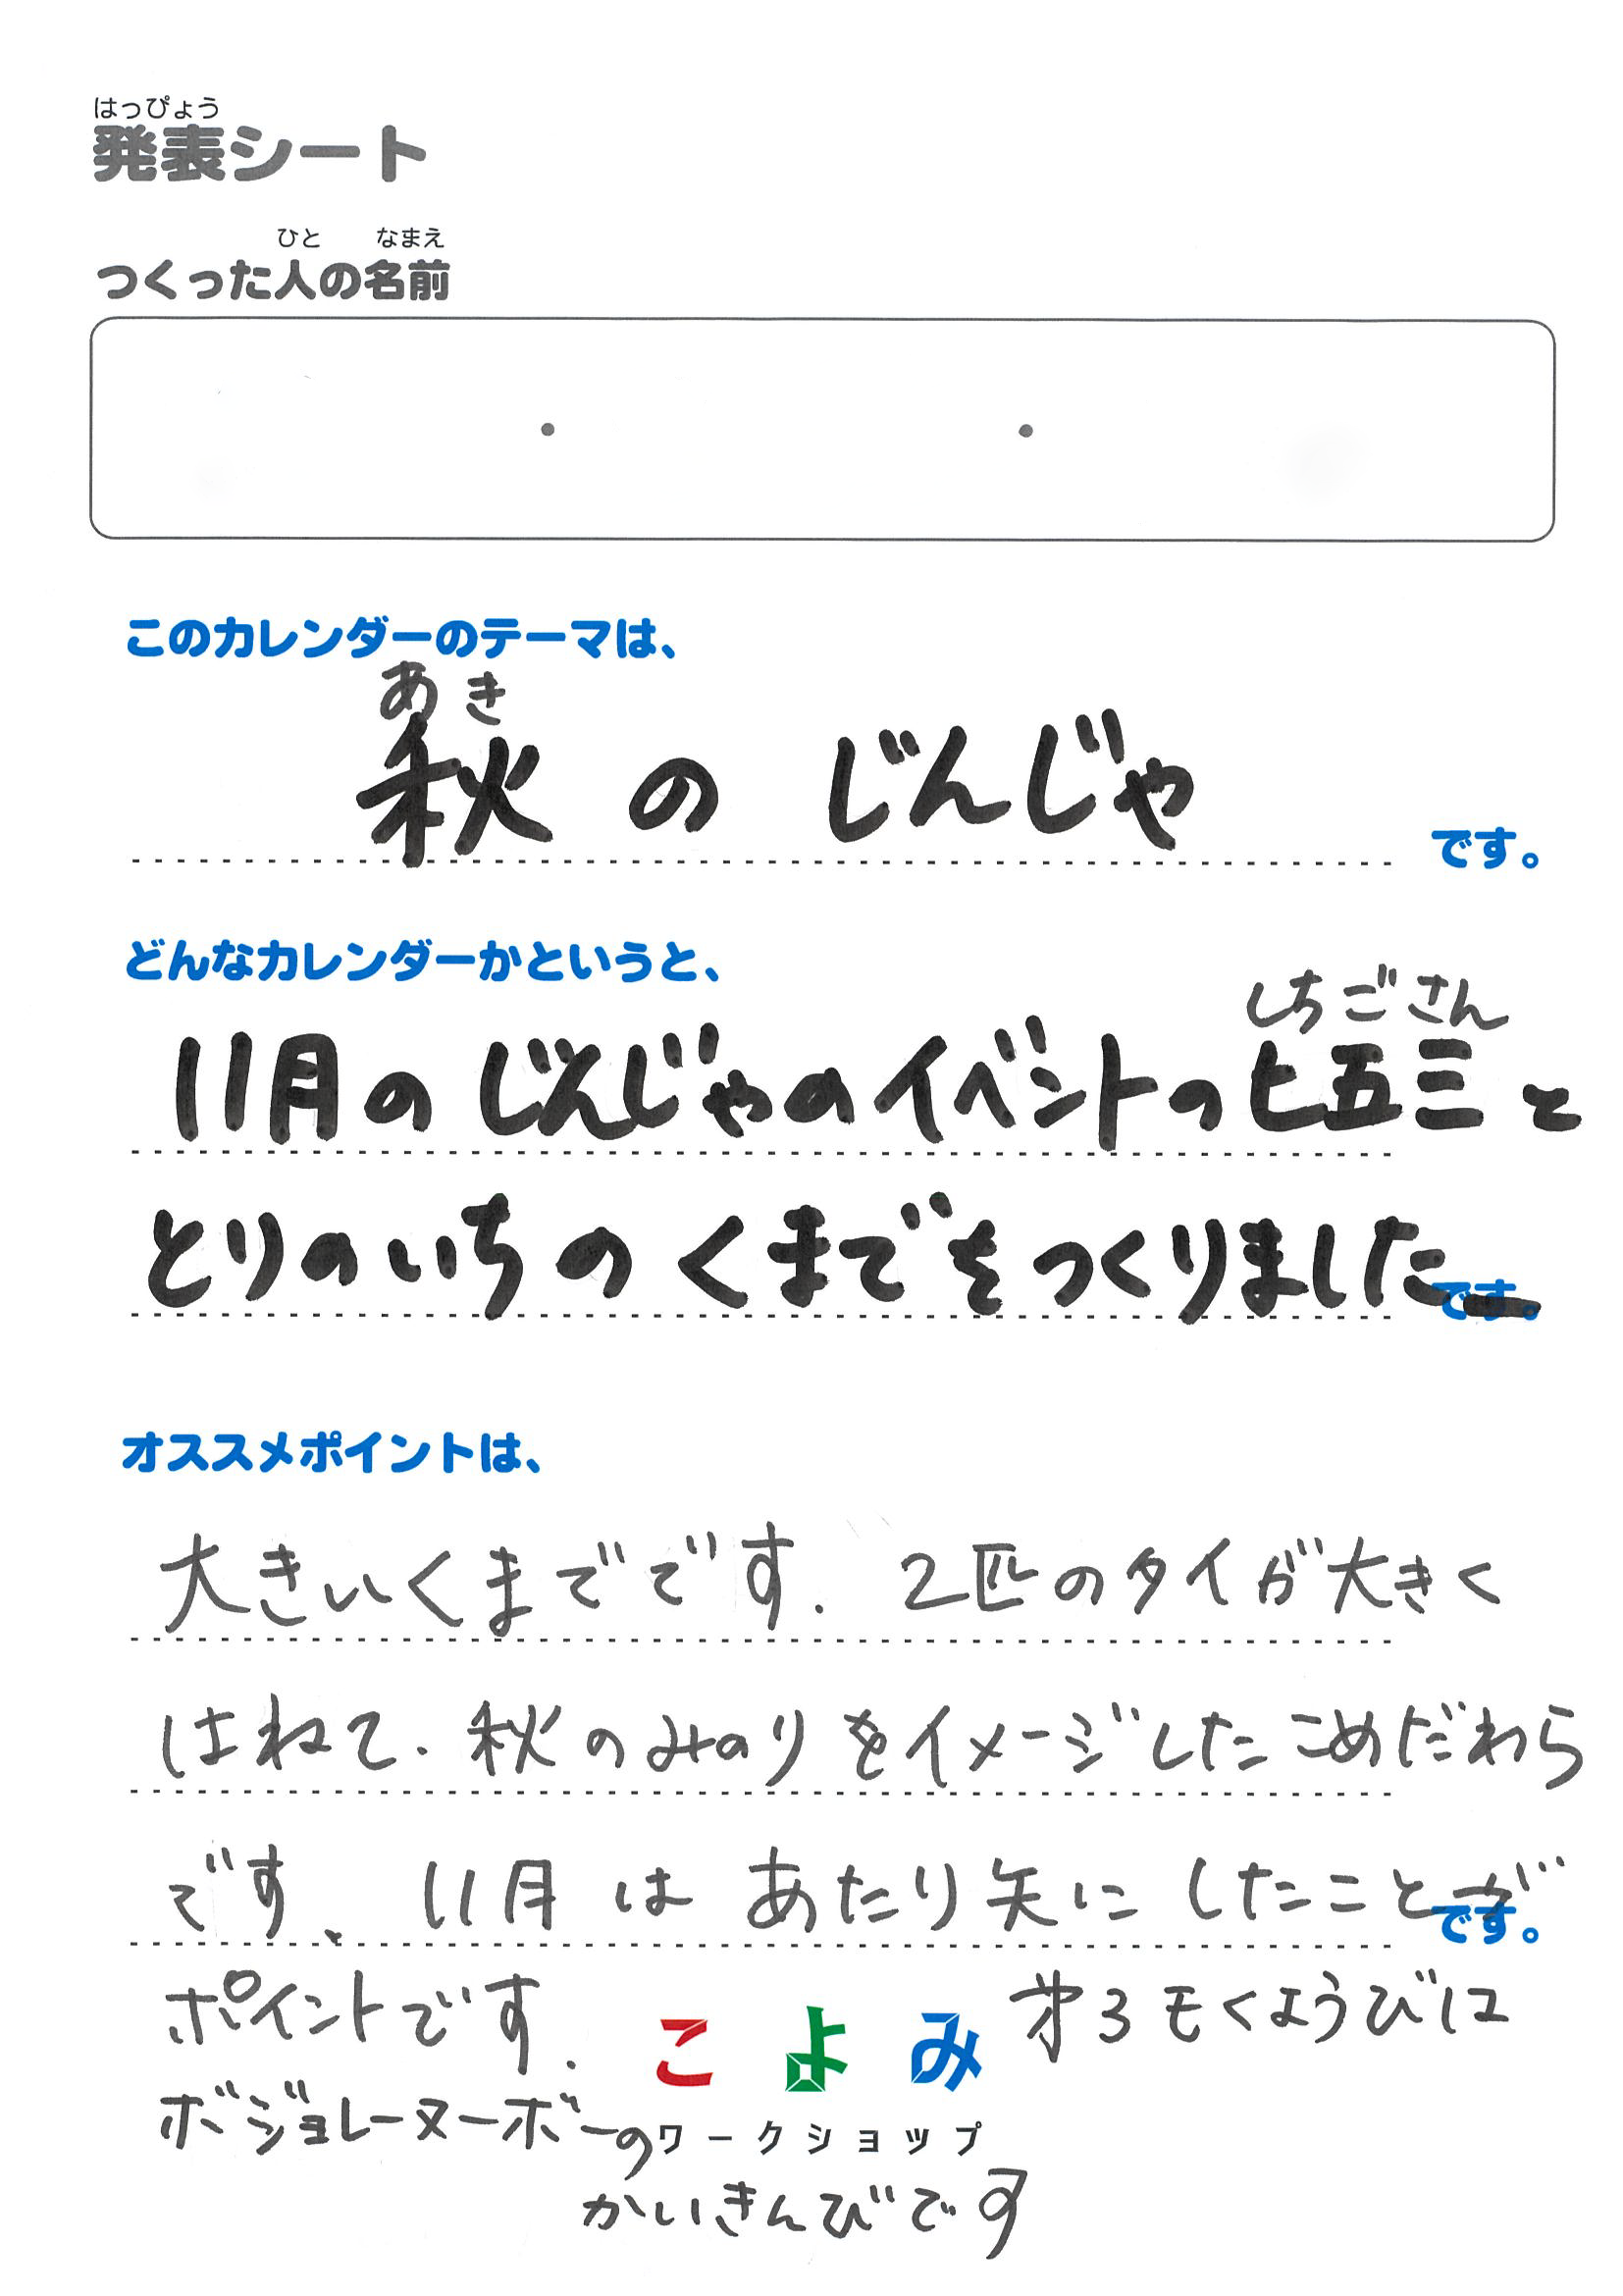 はっぴょう
発表シート
ひと なまえ
つくった人の名前
・ ・
このカレンダーのテーマは、
あき
秋のじんじゃ
です。
どんなカレンダーかというと、
しちごさん
11月のじんじゃのイベントの七五三と
とりのいちのくまでをつくりました
です。
オススメポイントは、
大きいくまでです. 2匹のタイが大きく
はねて. 秋のみのりをイメージしたこめだわら
です、 11月はあたり矢にしたことが
です。
ポイントです.
こよみ
第3もくようびは
ボジョレーヌーボーの
ワークショップ
かいきんびです